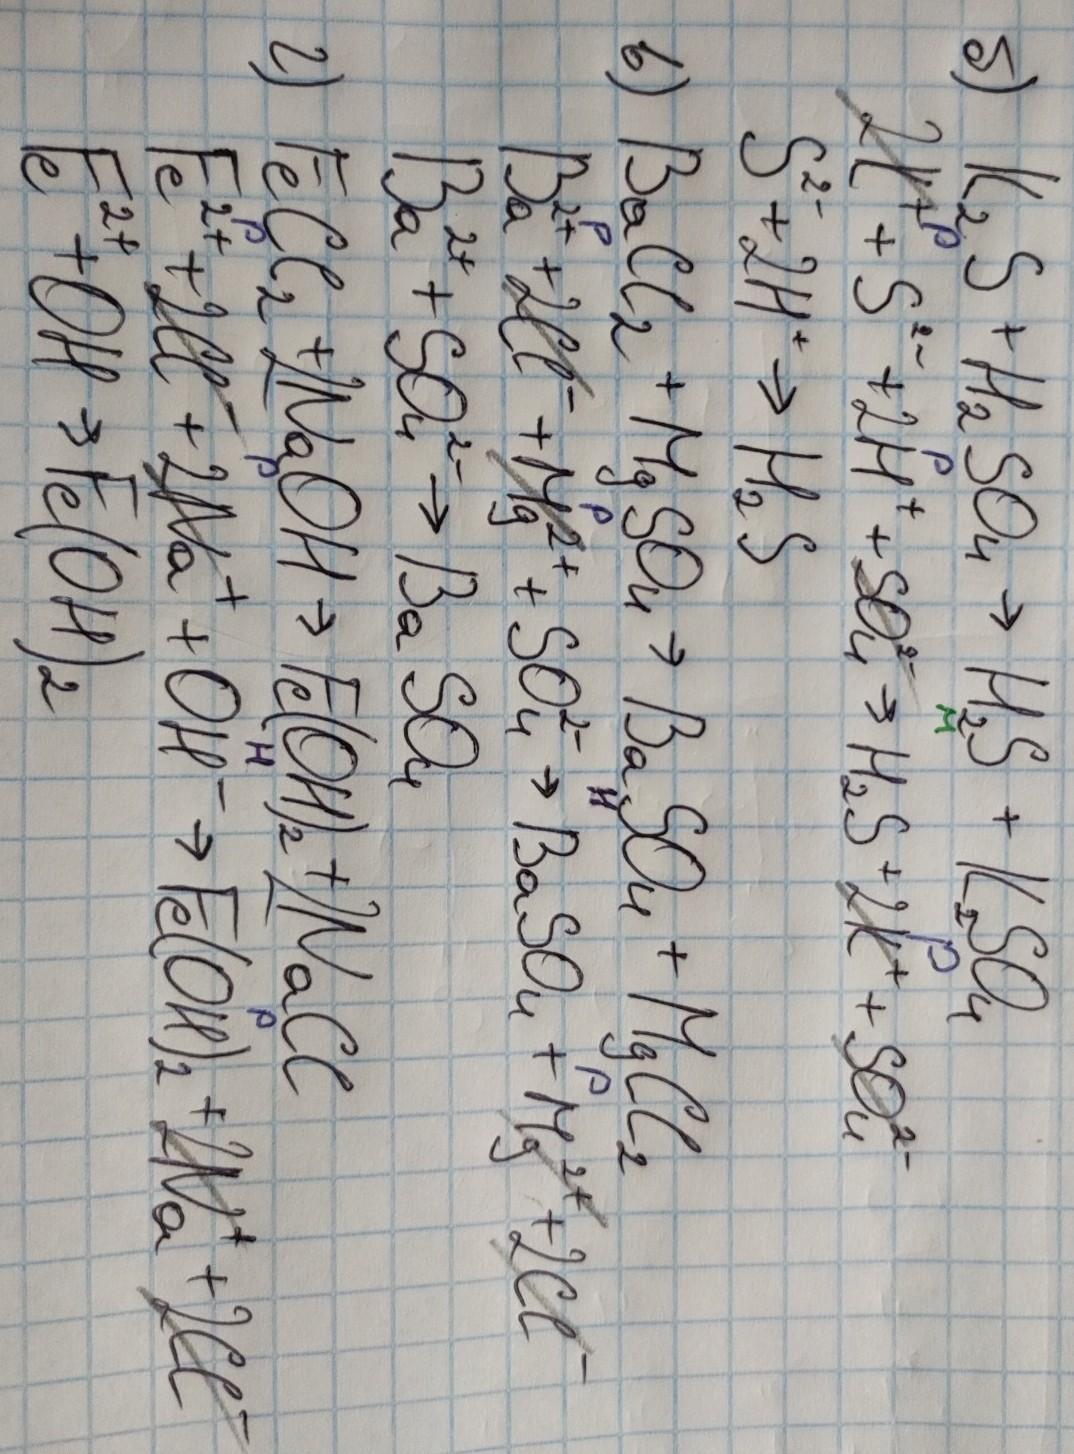 б) K₂S + H₂SO₄ → H₂S + K₂SO₄
р р м р
2K⁺ + S²⁻ + 2H⁺ + SO₄²⁻ → H₂S + 2K⁺ + SO₄²⁻
S²⁻ + 2H⁺ → H₂S
в) BaCl₂ + MgSO₄ → BaSO₄ + MgCl₂
р р н р
Ba²⁺ + 2Cl⁻ + Mg²⁺ + SO₄²⁻ → BaSO₄ + Mg²⁺ + 2Cl⁻
Ba²⁺ + SO₄²⁻ → BaSO₄
г) FeCl₂ + 2NaOH → Fe(OH)₂ + 2NaCl
р р н р
Fe²⁺ + 2Cl⁻ + 2Na⁺ + OH⁻ → Fe(OH)₂ + 2Na⁺ + 2Cl⁻
Fe²⁺ + OH → Fe(OH)₂